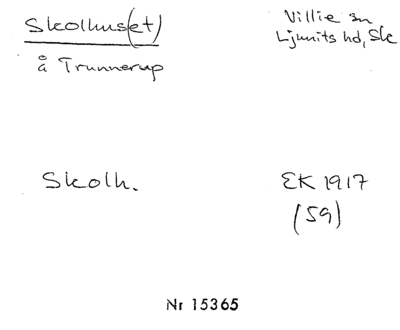 Skolhus(et)
å Trunnerup
Villie sn
Ljunits hd, Sk
Skolh.
EK 1917
(59)
Nr 15365